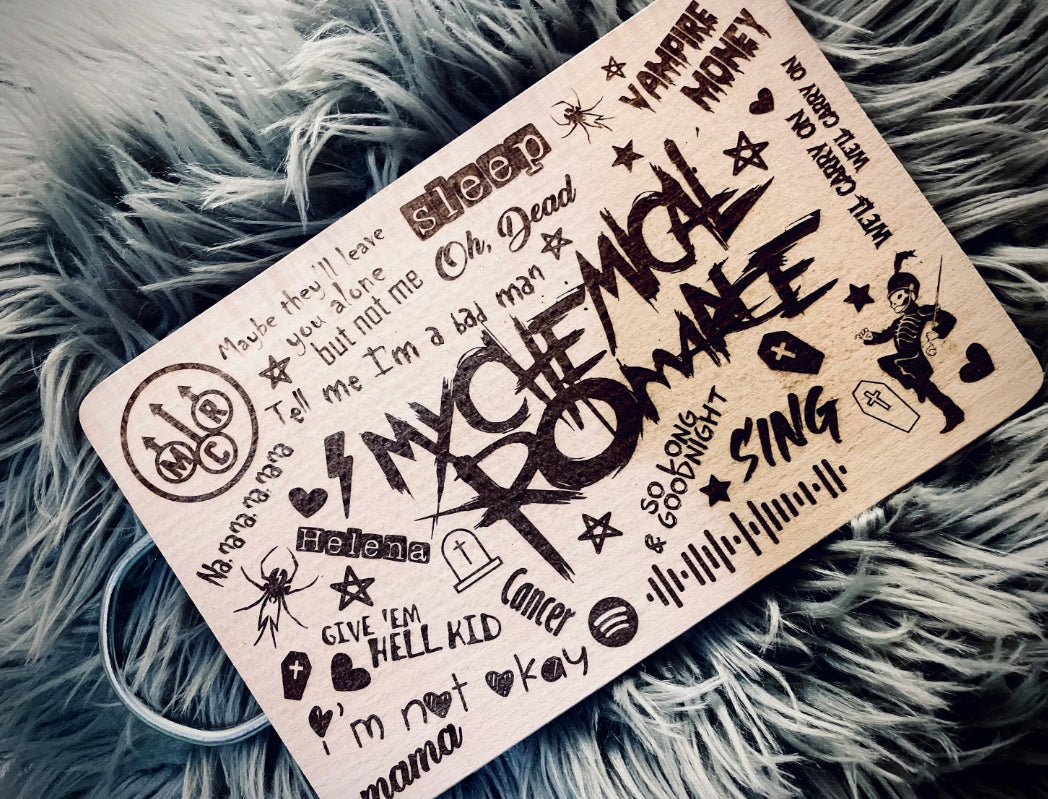 VAMPIRE
MONEY
WE'LL CARRY ON
WE'LL CARRY ON
sleep
Oh, Dead
Maybe they'll leave
you alone
but not me
Tell me I'm a bad man
MY CHEMICAL
ROMANCE
M C R
Na, na na na, na, na na na
Helena
SO LONG
& GOODNIGHT
SING
GIVE 'EM
HELL KID
Cancer
i'm not okay
mama